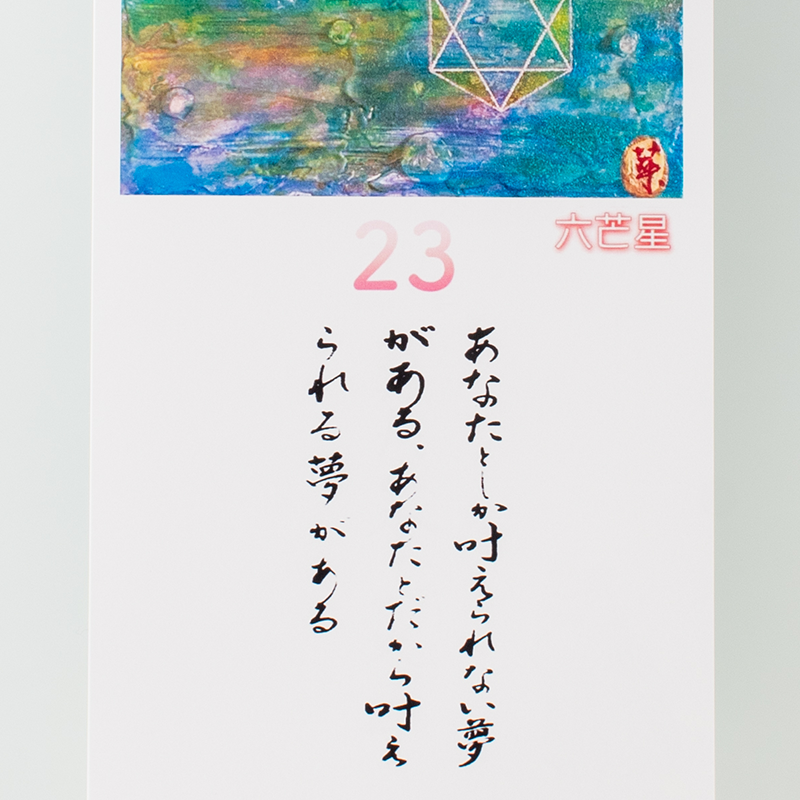 華
六芒星
23
あなたとしか叶えられない夢
がある、あなたとだから叶え
られる夢がある